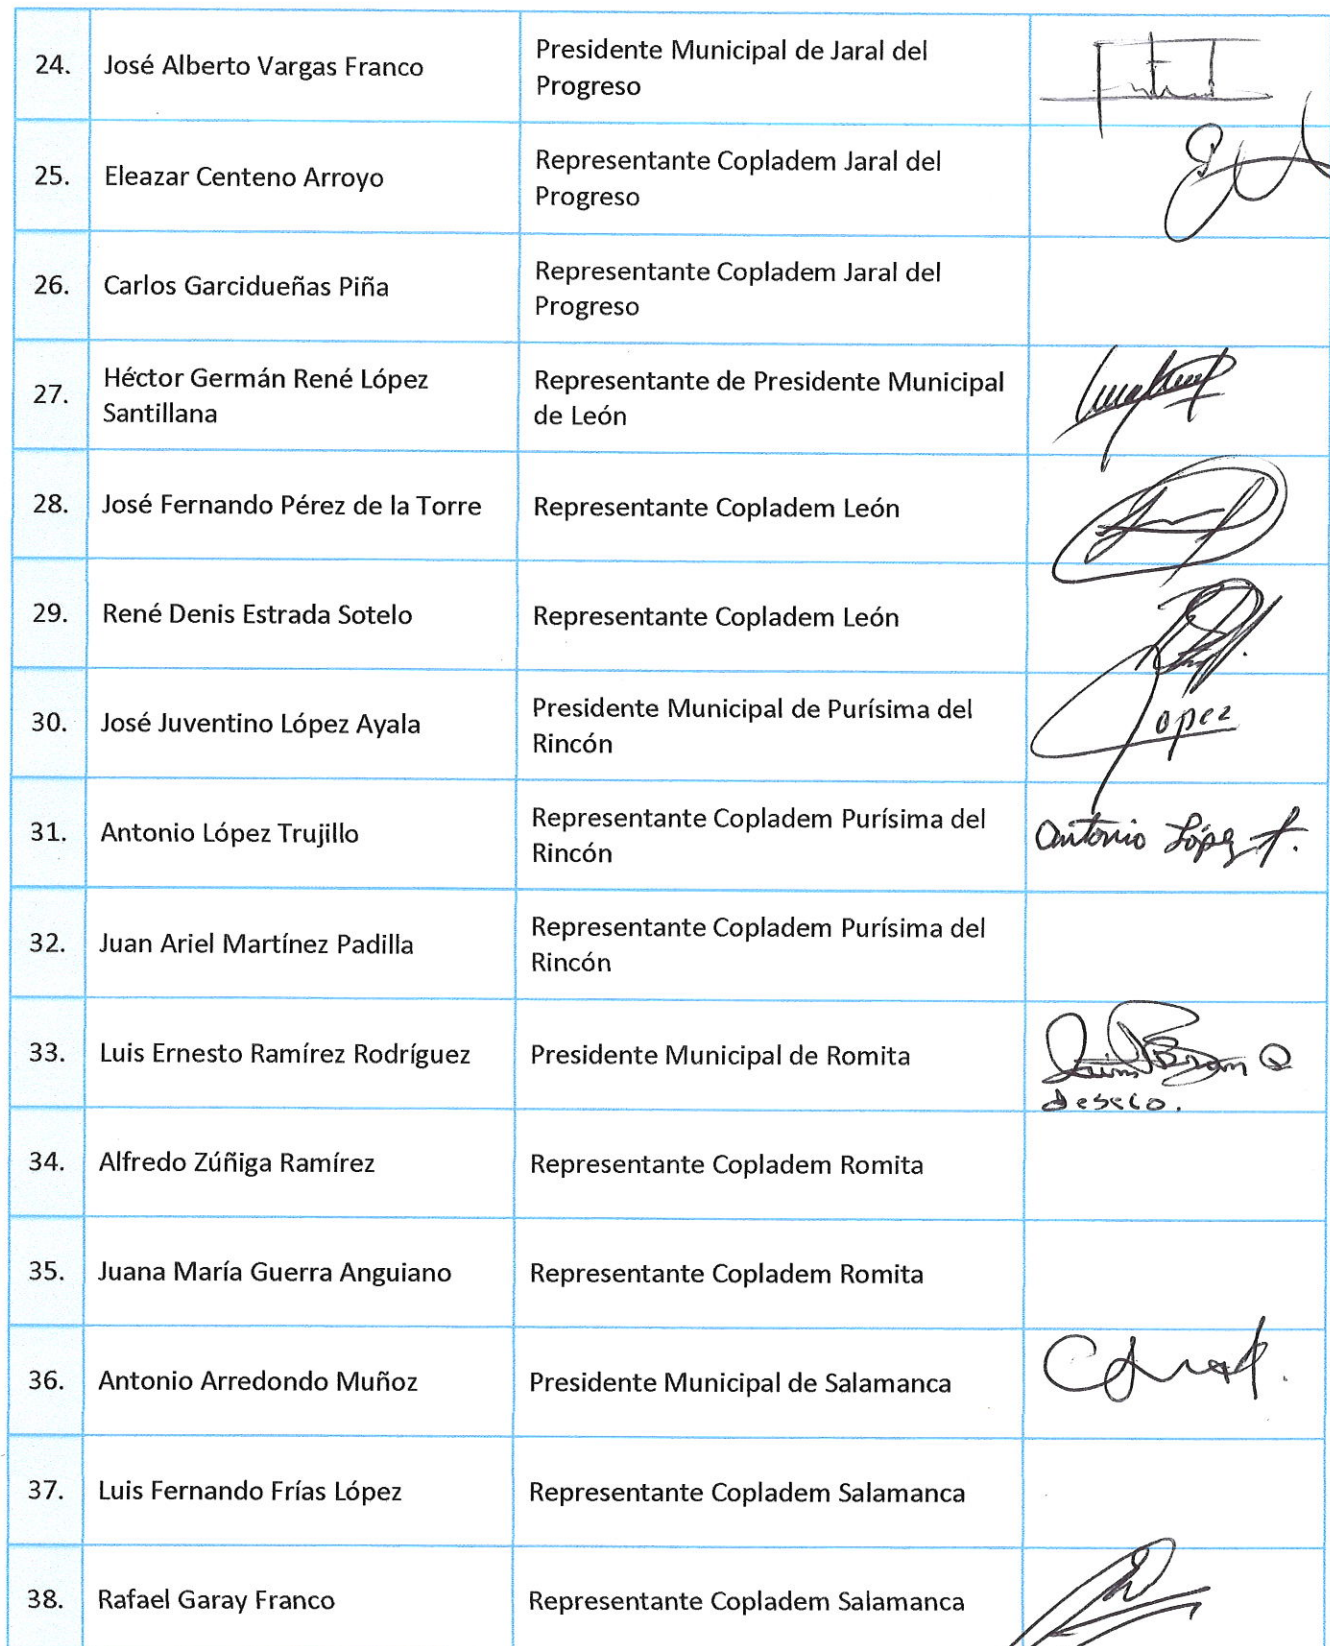 24. José Alberto Vargas Franco Presidente Municipal de Jaral del
Progreso
25. Eleazar Centeno Arroyo Representante Copladem Jaral del
Progreso
26. Carlos Garcidueñas Piña Representante Copladem Jaral del
Progreso
27. Héctor Germán René López
Santillana
Representante de Presidente Municipal
de León
28. José Fernando Pérez de la Torre Representante Copladem León
29. René Denis Estrada Sotelo Representante Copladem León
30. José Juventino López Ayala Presidente Municipal de Purísima del
Rincón
Lopez
31. Antonio López Trujillo Representante Copladem Purísima del
Rincón
Antonio López T.
32. Juan Ariel Martínez Padilla Representante Copladem Purísima del
Rincón
33. Luis Ernesto Ramírez Rodríguez Presidente Municipal de Romita
34. Alfredo Zúñiga Ramírez Representante Copladem Romita
35. Juana María Guerra Anguiano Representante Copladem Romita
36. Antonio Arredondo Muñoz Presidente Municipal de Salamanca
37. Luis Fernando Frías López Representante Copladem Salamanca
38. Rafael Garay Franco Representante Copladem Salamanca